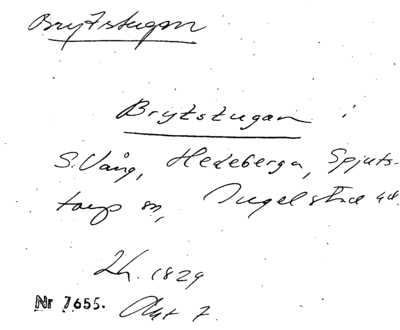 Brytstugan
Brytstugan i
S. Vång, Hedeberga, Spjuts-
torp sn, Ingelstad hd.
Lh. 1829
Nr 7655. Akt 7.